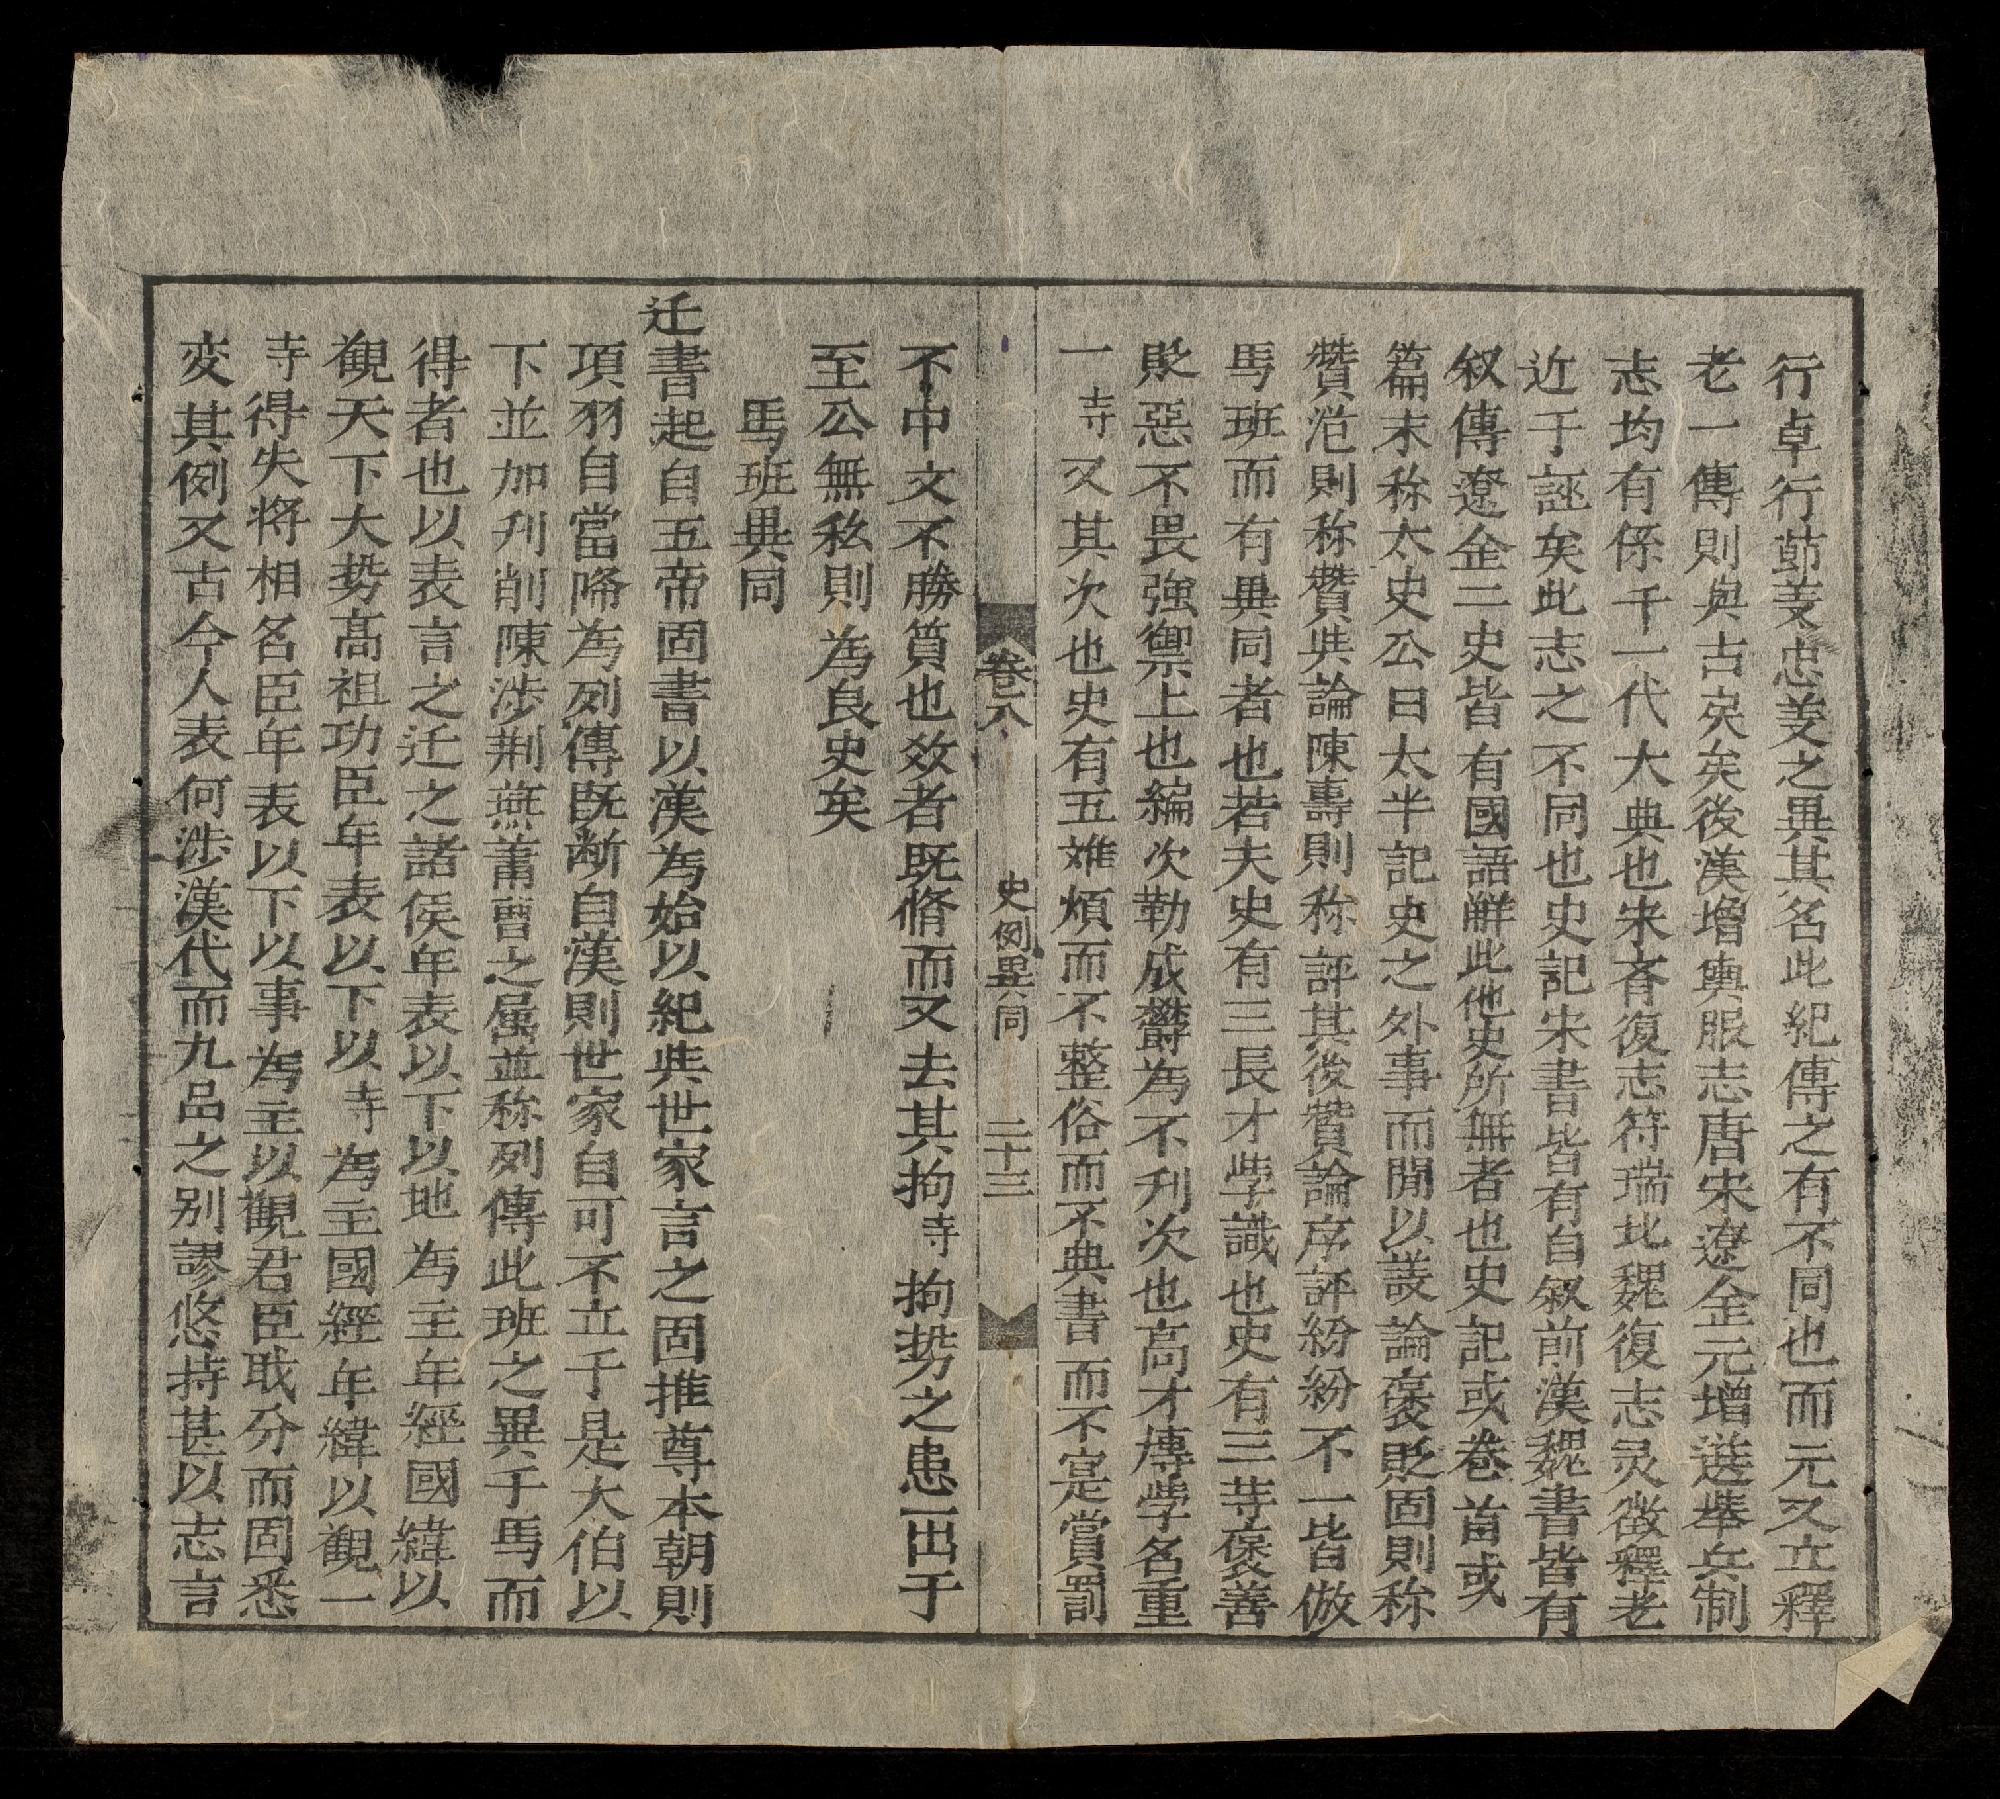 行卓行莭義忠義之異其名此紀傳之有不同也而元又立釋
老一傳則與古矣矣後漢增輿服志唐宋遼金元增選举兵制
志均有係千一代大典也宋斉復志符瑞北魏復志灵徴釋老
近于誣矣此志之不同也史記宋書皆有自叙前漢魏書皆有
叙傳遼金二史皆有國語觧此他史所無者也史記或巻首或
篇末称太史公曰太半記史之外事而閒以議論褒貶固則称
贊范則称贊共論陳壽則称評其後贊論序評紛紛不一皆倣
馬班而有異同者也若夫史有三長才斈識也史有三等褒善
貶惡不畏強禦上也編次勒成欝為不刋次也高才博斈名重
一寺又其次也史有五难煩而不整俗而不典書而不寔賞罰
卷八 史例異同 二十三
不中文不勝質也效者既脩而又去其拘寺拘势之患一出于
至公無私則為良史矣
馬班異同
迁書起自五帝固書以漢為始以紀共世家言之固推尊本朝則
項羽自當降為列傳既断自漢則世家自可不立于是大伯以
下並加刋削陳涉荆燕蕭曹之屬並称列傳此班之異千馬而
得者也以表言之迁之諸侯年表以下以地為主年經國緯以
観天下大势髙祖功臣年表以下以寺為主國經年緯以観一
寺得失将相名臣年表以下以事為主以觀君臣戝分而固悉
变其例又古今人表何涉漢代而九品之别謬悠持甚以志言